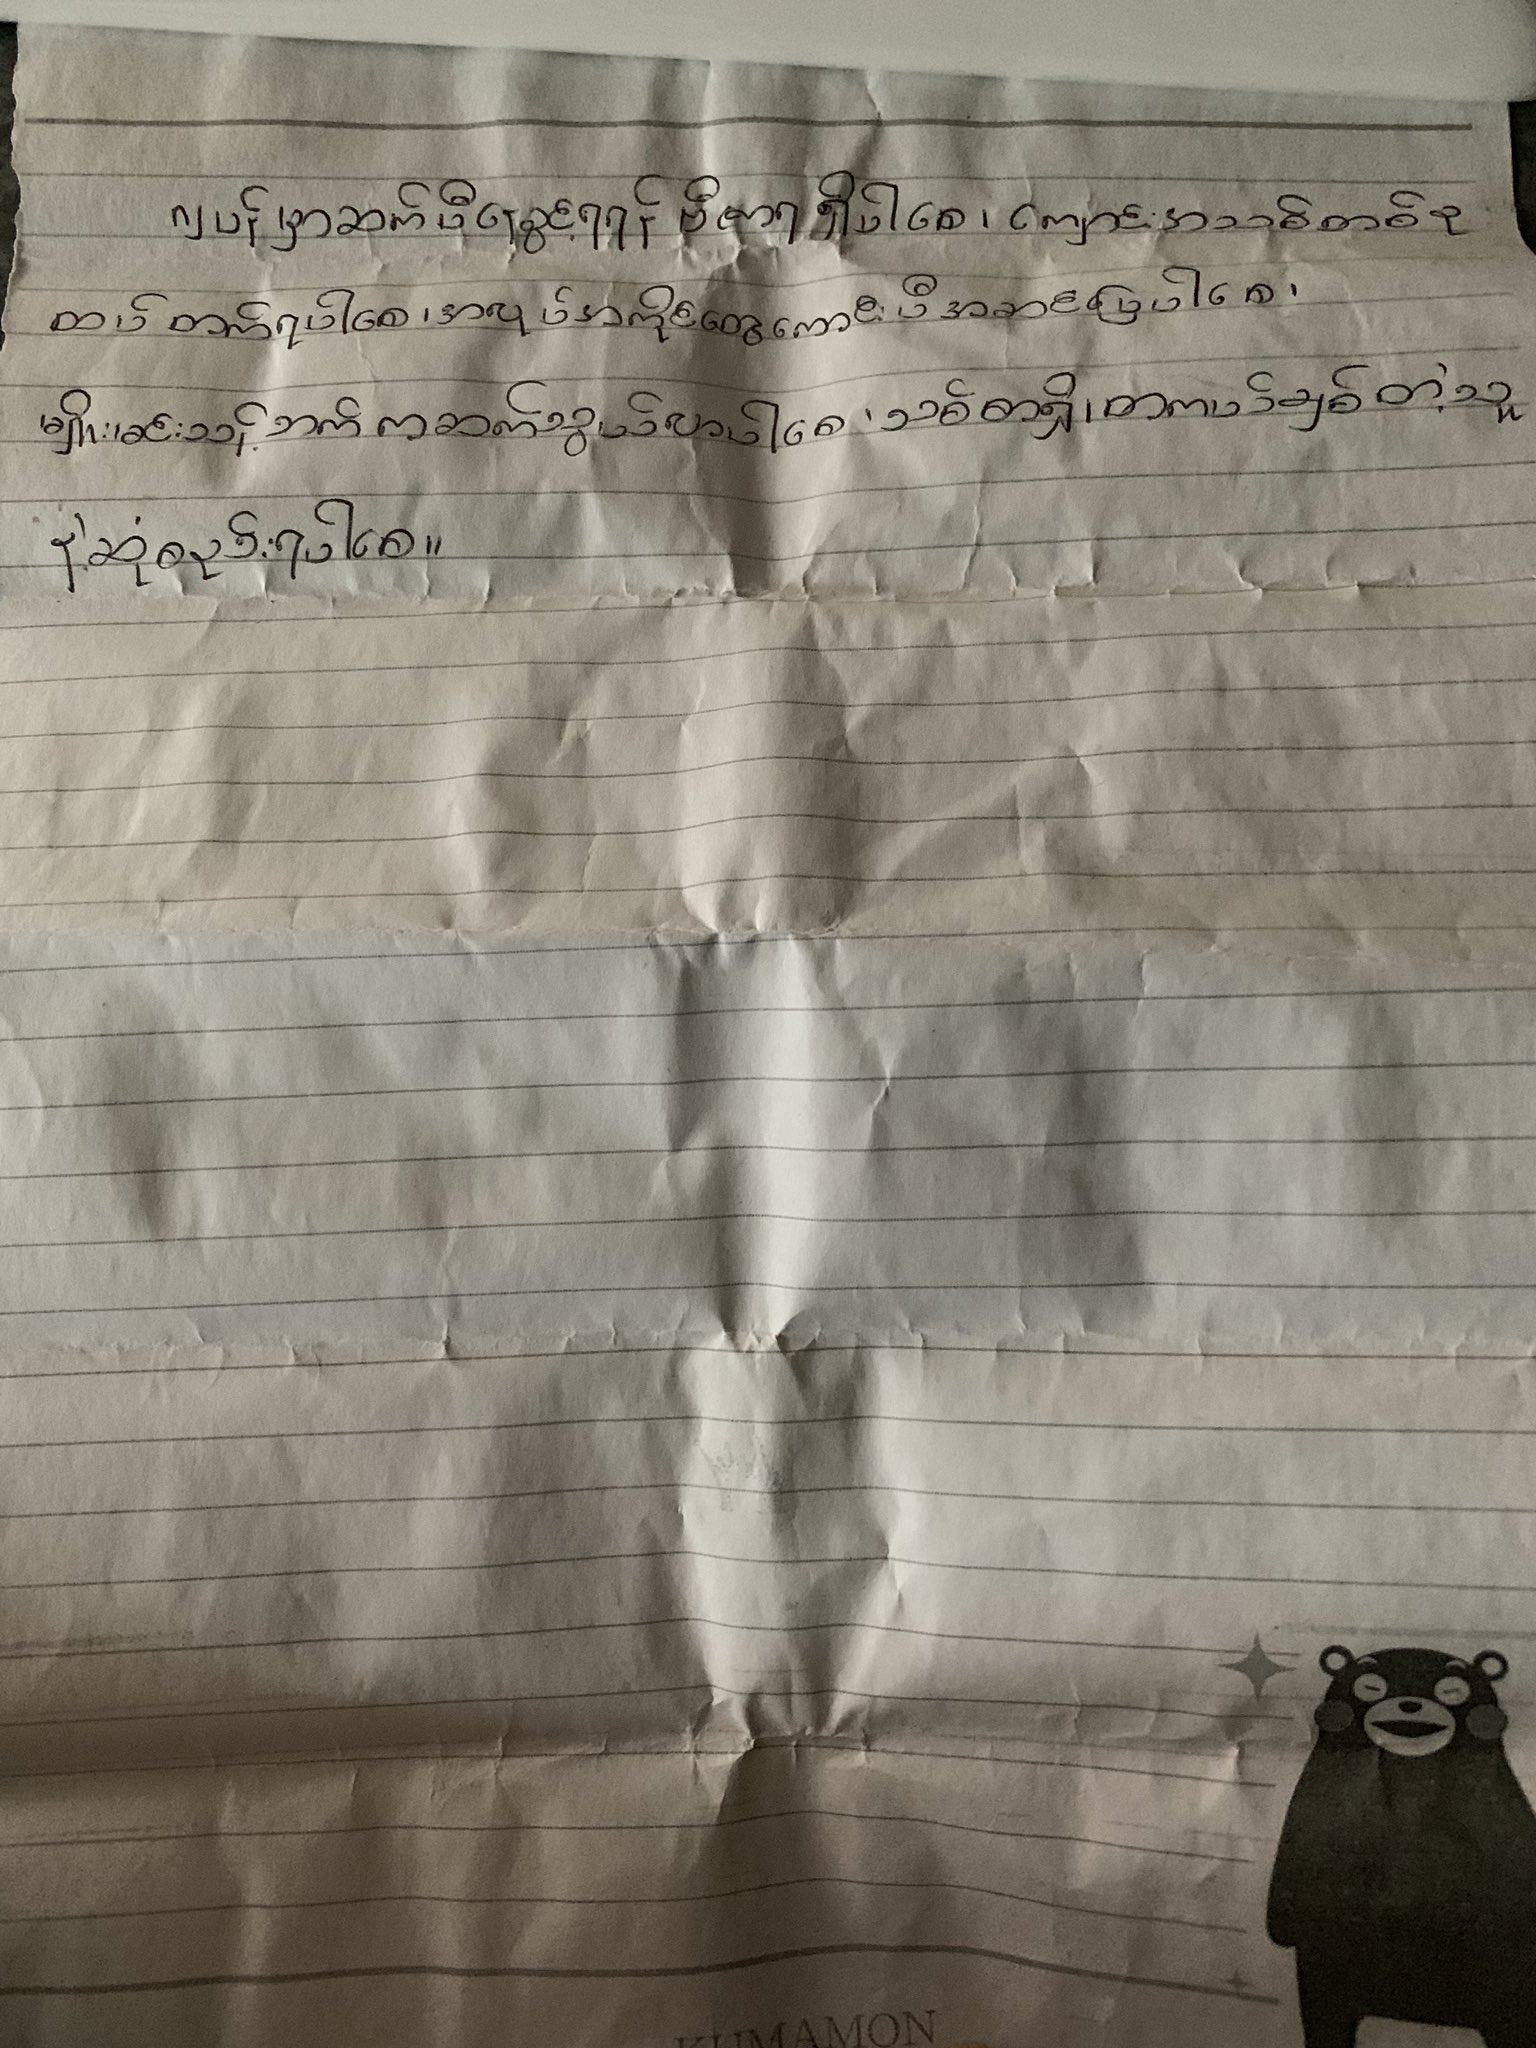 ဂျပန်မှာဆက်ပြီးနေခွင့်ရရန် ဗီဇာရရှိပါစေ၊ ကျောင်းအသစ်တစ်ခု
တပ်တက်ရပါစေ၊ အလုပ်အကိုင်တွေကောင်းပြီအဆင်ပြေပါစေ၊
မျိုးမင်းသန့်ဘက်ကဆက်သွယ်လာပါစေ၊ သစ်စာရှိ၊ တကယ်ချစ်တဲ့သူ
နဲ့ဆုံစည်းရပါစေ။
KUMAMON